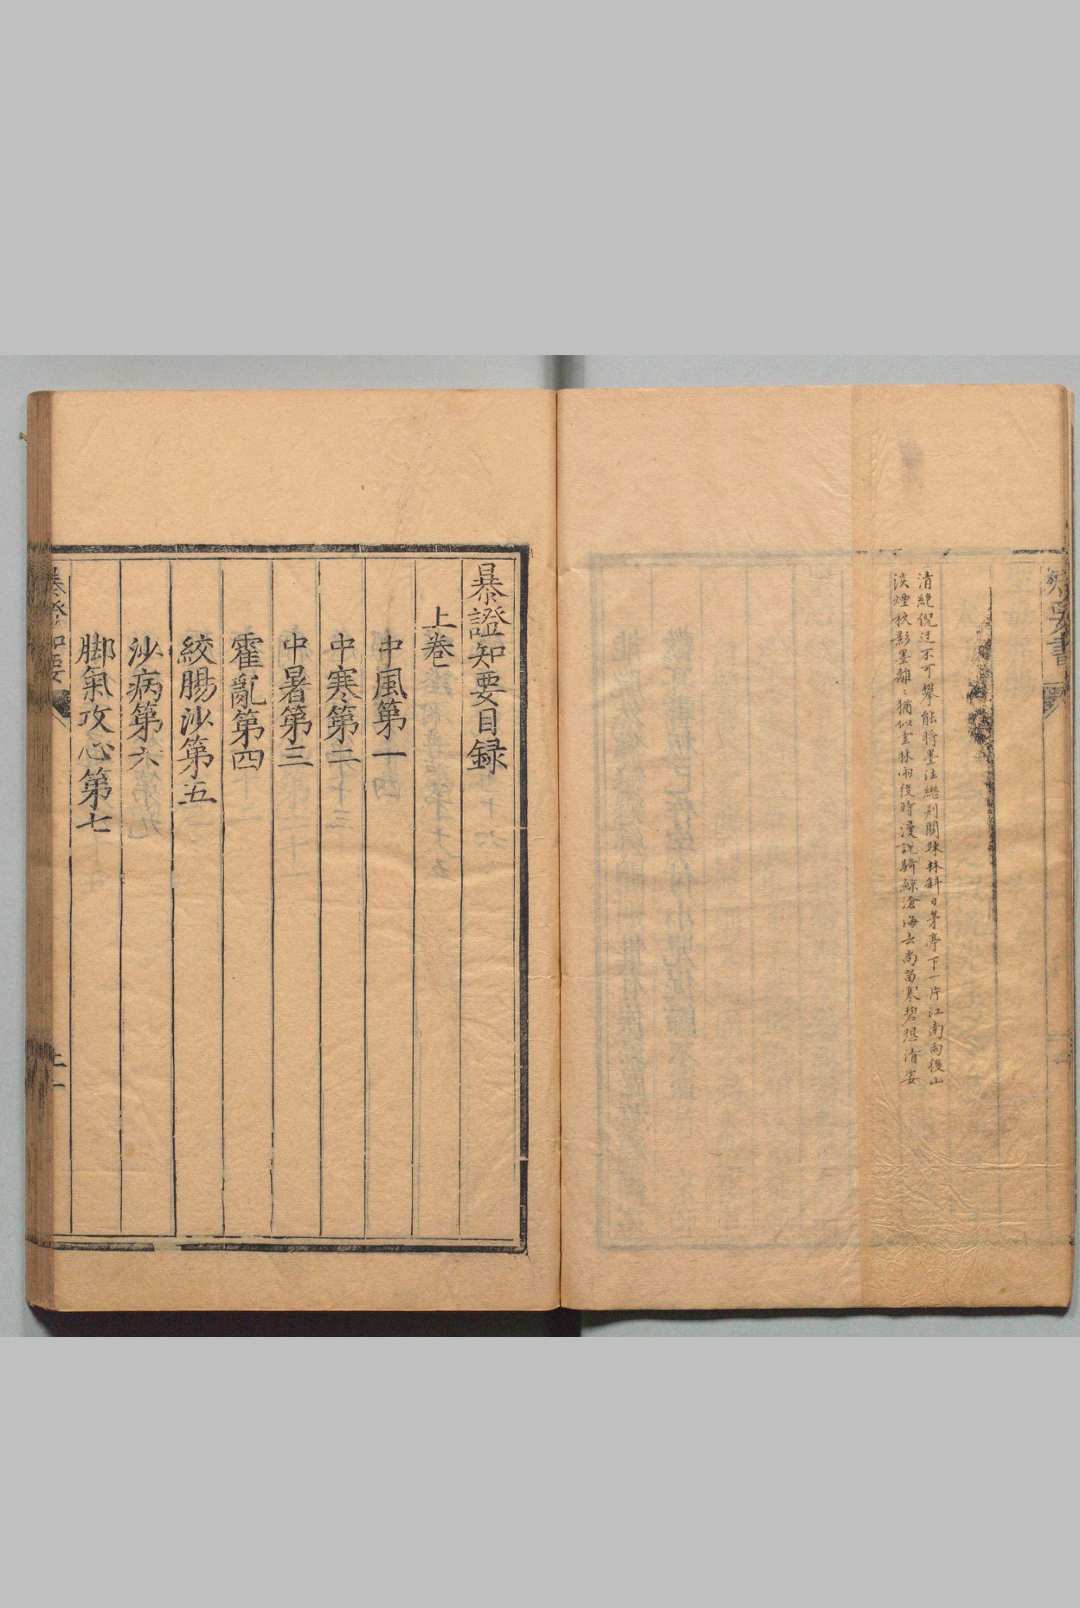 清絶倪迂不可攀能將墨注繼荊關疎林斜日茅亭下一片江南雨後山
淡煙杈影墨離〻猶似空林雨後時漫說騎鯨滄海去尚留寒碧想清姿
暴證知要目録
上卷
中風第一
中寒第二
中暑第三
霍亂第四
絞腸沙第五
沙病第六
脚氣攻心第七
暴證知要
上
一